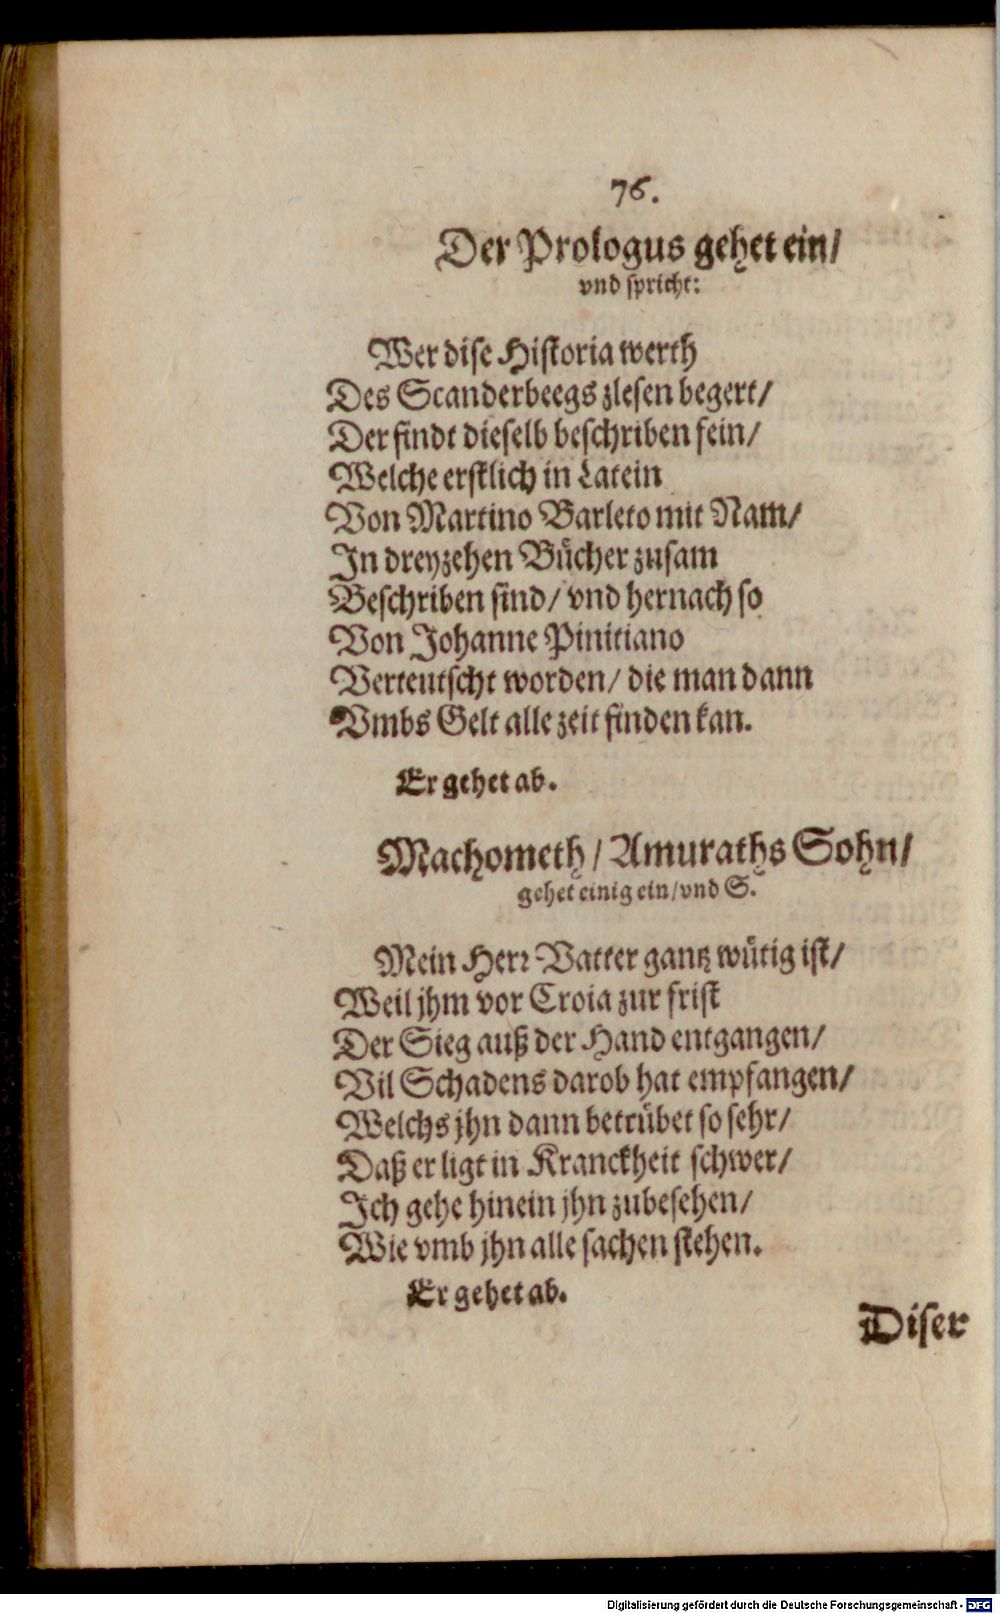 76.
Der Prologus gehet ein/
vnd spricht:
Wer dise Historia werth
Des Scanderbeegs zlesen begert/
Der findt dieselb beschriben fein/
Welche erstlich in Latein
Von Martino Barleto mit Nam/
In dreyzehen Bücher zusam
Beschriben sind/ vnd hernach so
Von Johanne Pinitiano
Verteutscht worden/ die man dann
Vmbs Gelt alle zeit finden kan.
Er gehet ab.
Machometh/ Amuraths Sohn/
gehet einig ein/ vnd S.
Mein Herr Vatter gantz wütig ist/
Weil jhm vor Croia zur frist
Der Sieg auß der Hand entgangen/
Vil Schadens darob hat empfangen/
Welchs jhn dann betrübet so sehr/
Daß er ligt in Kranckheit schwer/
Ich gehe hinein jhn zubesehen/
Wie vmb jhn alle sachen stehen.
Er gehet ab.
Diser
Digitalisierung gefördert durch die Deutsche Forschungsgemeinschaft - DFG